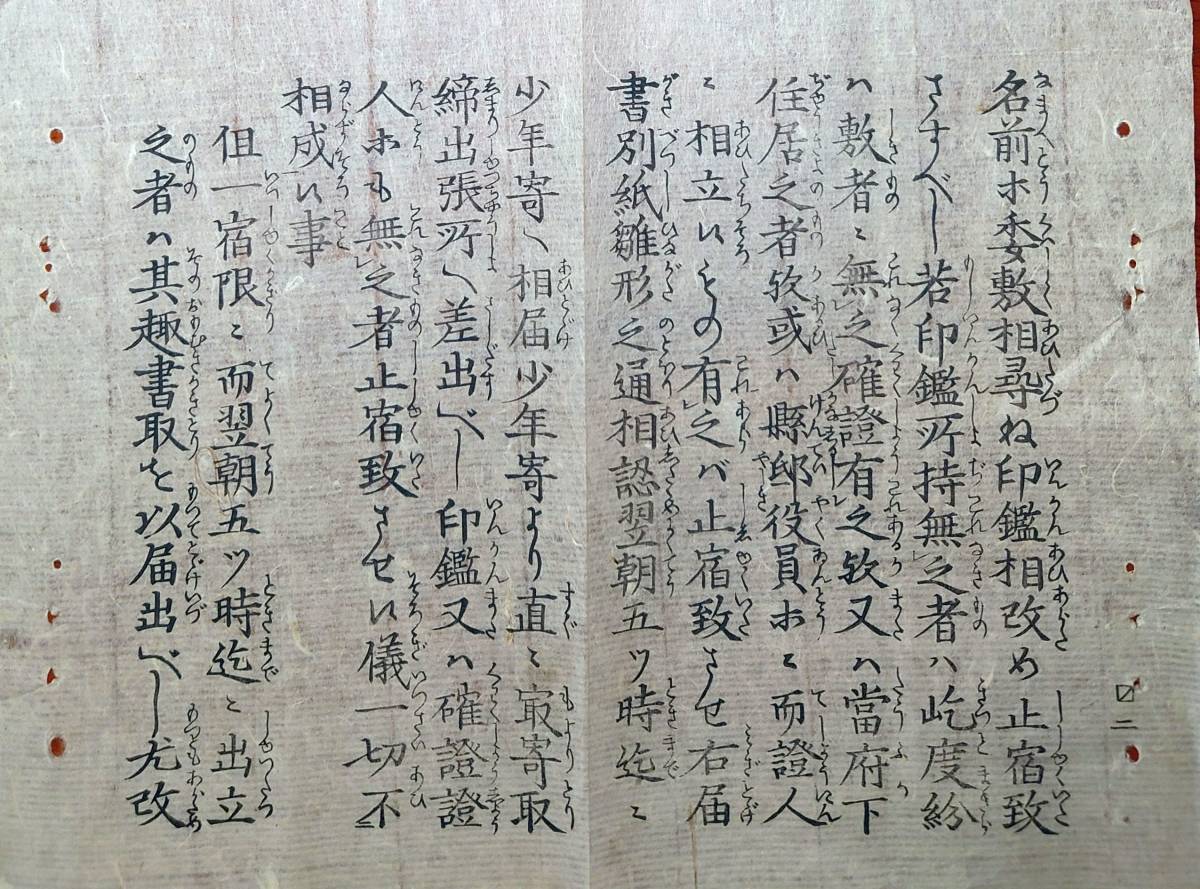 名前ホ委敷相尋ね印鑑相改め止宿致
さすべし若印鑑所持無之者ハ屹度紛
ハ敷者ニ無之確證有之欤又ハ當府下
住居之者欤或ハ縣邸役員ホニ而證人
ニ相立候もの有之バ止宿致させ右届
書別紙雛形之通相認翌朝五ツ時迄ニ
少年寄へ相届少年寄より直ニ最寄取
締出張所へ差出べし印鑑又ハ確證證
人ホも無之者止宿致させ候儀一切不
相成候事
但一宿限ニ而翌朝五ツ時迄ニ出立
之者ハ其趣書取を以届出べし尤改
二